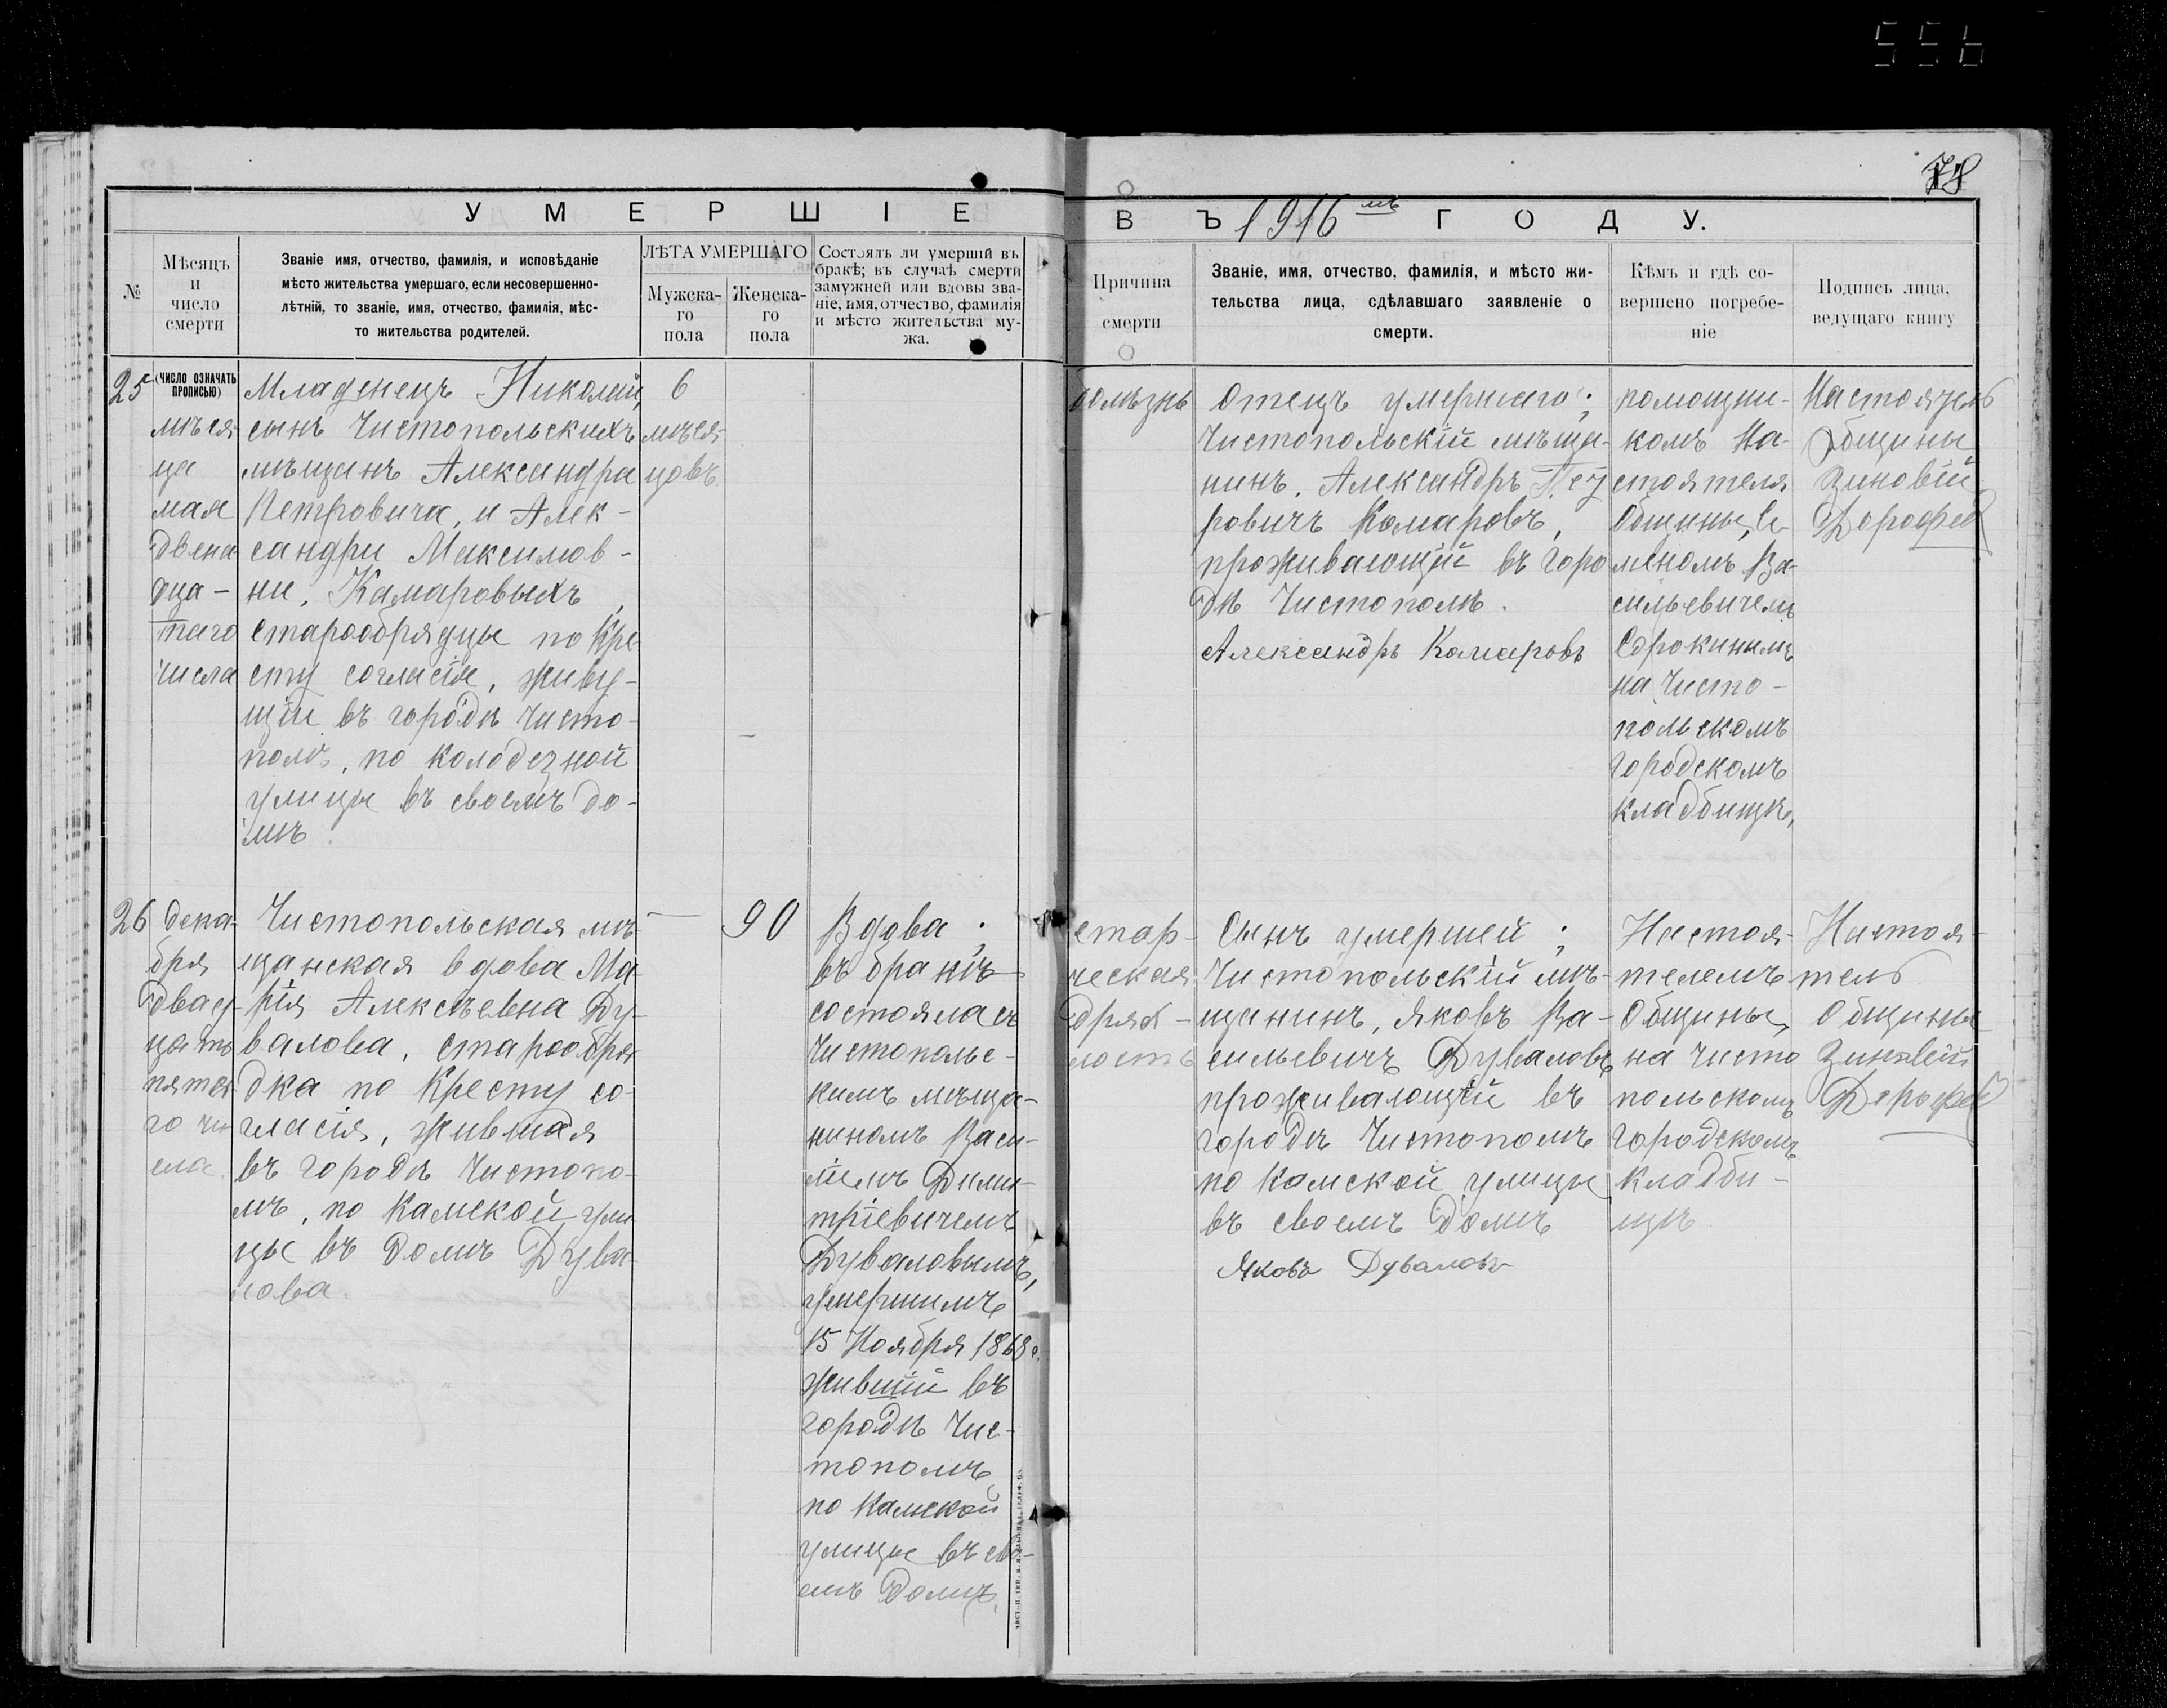 556
78
УМЕРШІЕ
ВЪ 1916 мъ ГОДУ.
№
Мѣсяцъ
и
число
смерти
Званіе имя, отчество, фамилія, и исповѣданіе
мѣсто жительства умершаго, если несовершенно-
лѣтній, то званіе, имя, отчество, фамилія, мѣс-
то жительства родителей.
ЛѢТА УМЕРШАГО
Мужска-
го
пола
Женска-
го
пола
Состоялъ ли умершій въ
бракѣ; въ случаѣ смерти
замужней или вдовы зва-
ніе, имя, отчество, фамилія
и мѣсто жительства му-
жа.
Причина
смерти
Званіе, имя, отчество, фамилія, и мѣсто жи-
тельства лица, сдѣлавшаго заявленіе о
смерти.
Кѣмъ и гдѣ со-
вершено погребе-
ніе
Подпись лица,
ведущаго книгу
25
(ЧИСЛО ОЗНАЧАТЬ
ПРОПИСЬЮ)
мѣся
ца
мая
двена
дца-
таго
числа
Младенецъ Николай,
сынъ Чистопольскихъ
мѣщанъ Александра
Петровича, и Алек-
сандры Максимов-
ны, Камаровыхъ,
старообрядцы по Кре-
сту согласія, живу-
щіи въ городѣ Чисто-
поль, по колодезной
улицы въ своемъ до-
мѣ.
6
мѣся
цовъ.
болѣзнь
Отецъ умершаго;
Чистопольскій мѣща-
нинъ, Александръ Пет
ровичъ Комаровъ,
проживающій въ горо
дѣ Чистополѣ.
Александръ Камаровъ
помощни-
комъ На-
стоятеля
Общины, Се
меномъ Ва-
сильевичемъ
Сорокинымъ
на Чисто-
польскомъ
городскомъ
кладбищѣ,
Настоятель
Общины
Зиновій
Дорофеев
26
дека-
бря
двад-
цать
пята
го чи
сла.
Чистопольская мѣ-
щанская вдова Ма
рія Алексѣевна Ду-
валова, старообря
дка по Кресту со-
гласія, жившая
въ городѣ Чистопо-
лѣ, по Камской ули
цы въ домѣ Дува
лова.
—
90
Вдова;
въ бракѣ
состояла съ
Чистопольс-
кимъ мѣща-
ниномъ Васи-
ліемъ Дими-
тріевичемъ
Дуваловымъ,
умершимъ
15 Ноября 1868 г.
живщій въ
городѣ Чис-
тополѣ
по Камской
улицы въ сво-
емъ домѣ,
стар-
ческая
дрях-
лость
Сынъ умершей;
Чистопольскій мѣ-
щанинъ, Яковъ Ва-
сильевичъ Дуваловъ
проживающій въ
городѣ Чистополѣ
по Камской улицы
въ своемъ домѣ
Яковъ Дуваловъ
Настоя-
телемъ
Общины,
на Чисто
польскомъ
городскомъ
кладби-
щѣ
Настоя-
тель
Общины
Зиновій
Дорофеев